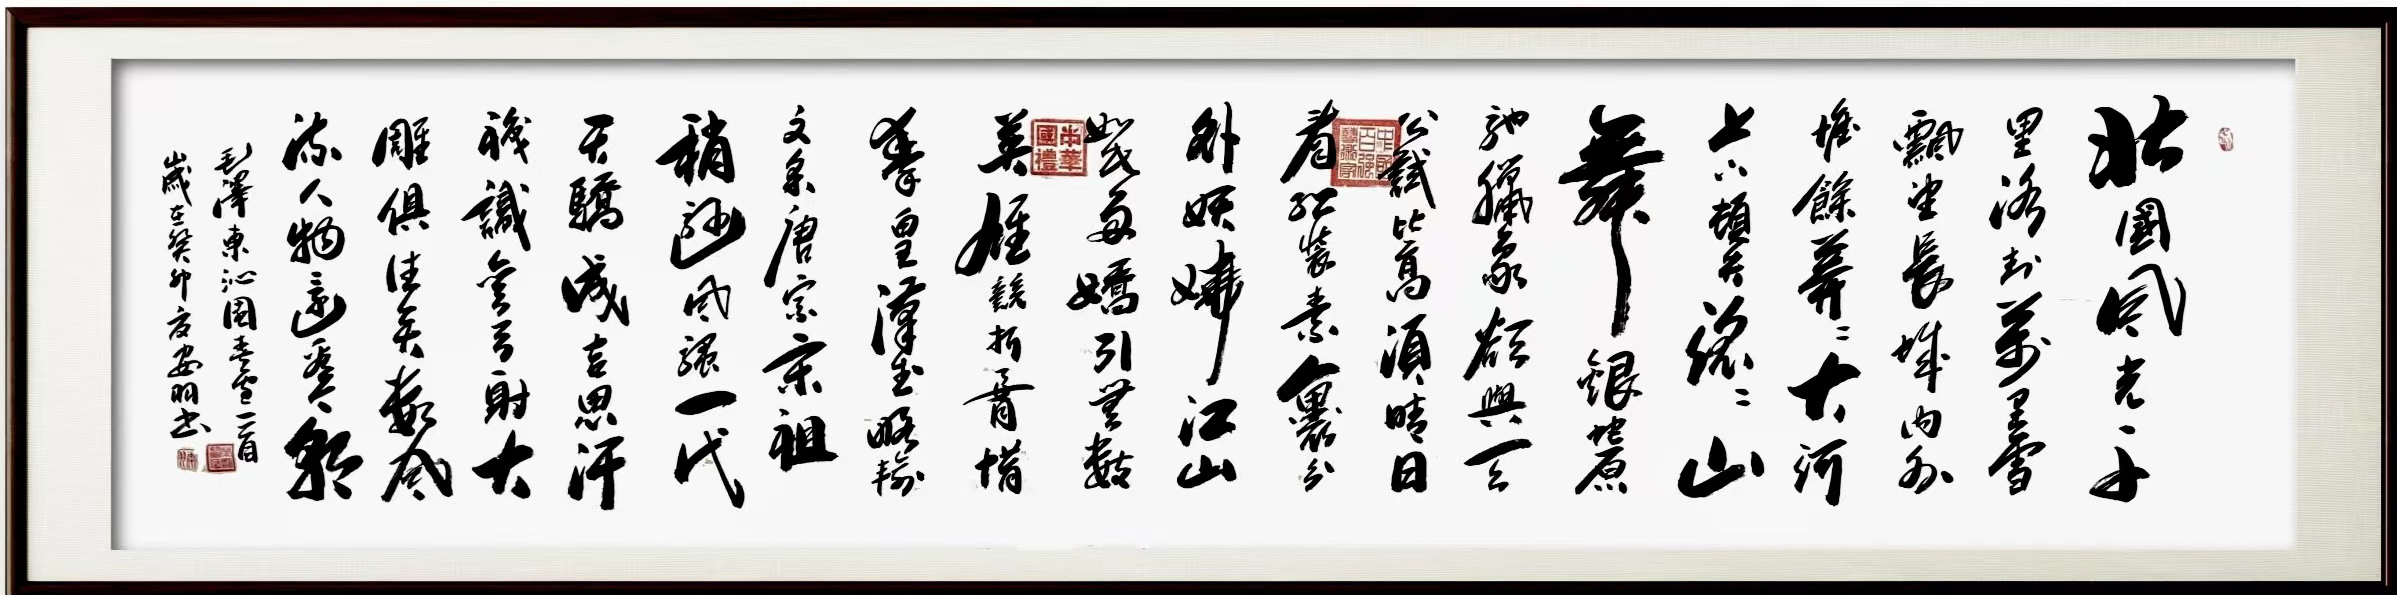 北國风光千
里冰封萬里雪
飄望長城内外
惟餘莽〻大河
上下頓失滔〻山
舞銀蛇原
驰臘象欲與天
公試比高須晴日
看红装素裹分
外妖嬈江山
如此多嬌引無數
英雄競折腰惜
秦皇漢武略输
文采唐宗宋祖
稍逊风骚一代
天驕成吉思汗
祗識弯弓射大
雕俱往矣数风
流人物还看今朝
毛澤東沁園春雪一首
歲在癸卯夏安羽书
中華國禮